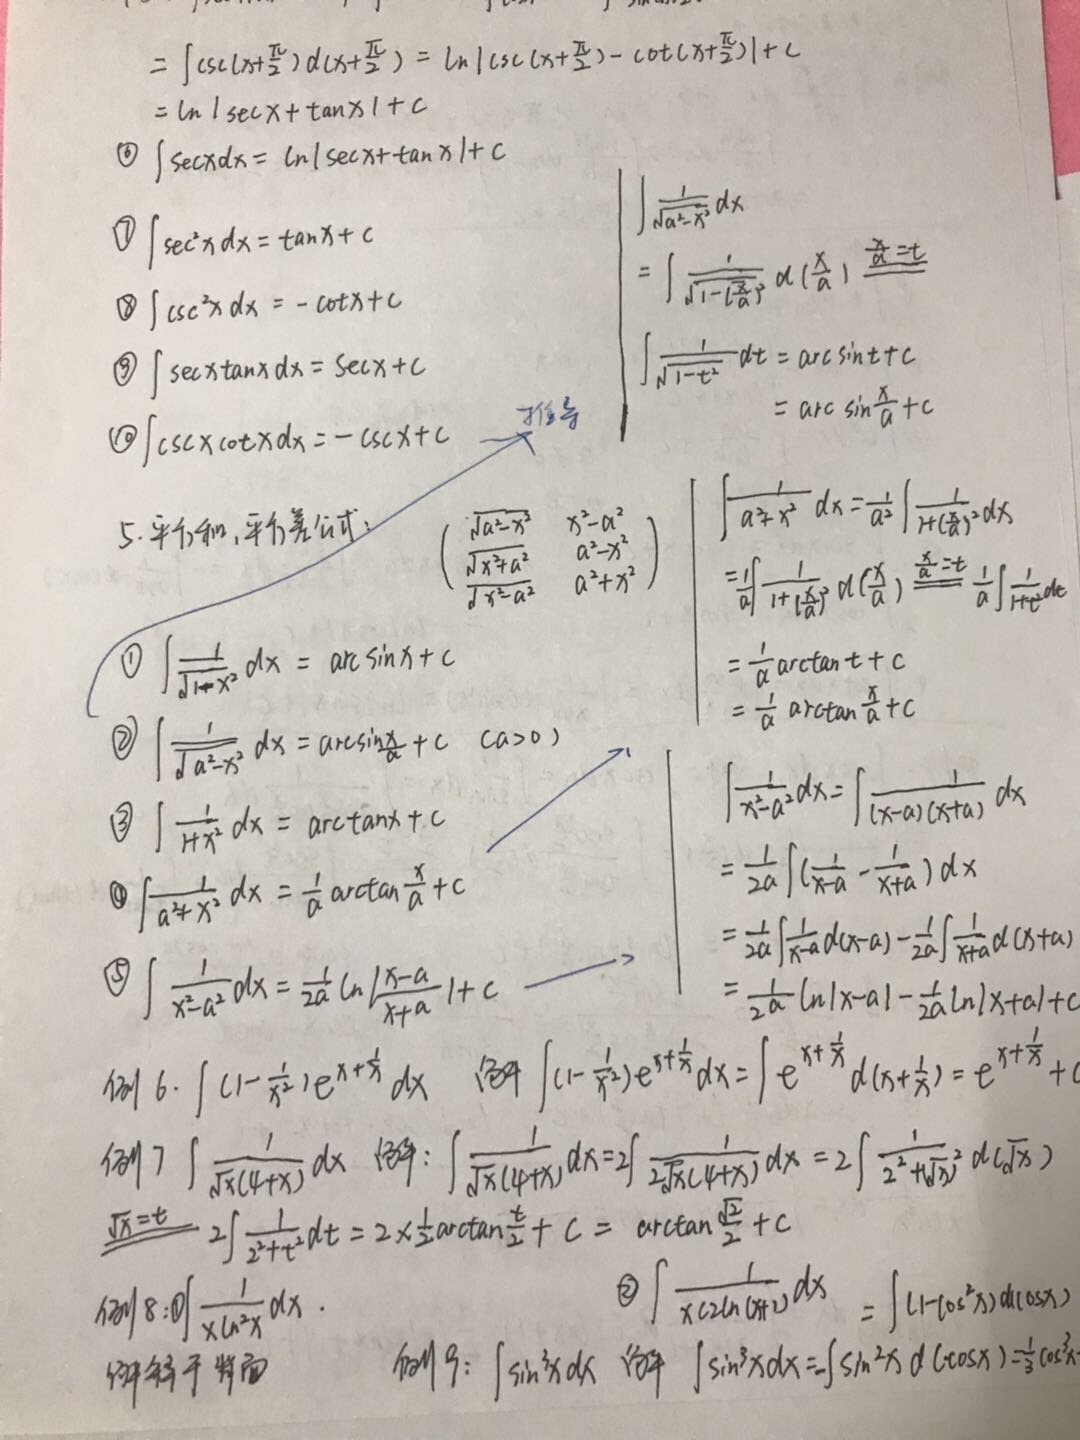 = ∫csc(x+π/2)d(x+π/2) = ln|csc(x+π/2)-cot(x+π/2)|+c
= ln|secx+tanx|+c
⑥ ∫secxdx = ln|secx+tanx|+c
⑦ ∫sec²xdx = tanx+c
⑧ ∫csc²xdx = -cotx+c
⑨ ∫secxtanxdx = secx+c
⑩ ∫cscxcotxdx = -cscx+c
推导
∫1/√(a²-x²) dx
= ∫1/√(1-(x/a)²) d(x/a) x/a=t
∫1/√(1-t²) dt = arcsint+c
= arcsin x/a +c
5.平方和,平方差公式:
√(a²-x²) x²-a²
√(x²+a²) a²-x²
√(x²-a²) a²+x²
① ∫1/√(1-x²) dx = arcsinx+c
② ∫1/√(a²-x²) dx = arcsin x/a +c (a>0)
③ ∫1/(1+x²) dx = arctanx+c
④ ∫1/(a²+x²) dx = 1/a arctan x/a +c
⑤ ∫1/(x²-a²) dx = 1/2a ln|(x-a)/(x+a)|+c
∫1/(a²+x²) dx = 1/a² ∫1/(1+(x/a)²) dx
= 1/a ∫1/(1+(x/a)²) d(x/a) x/a=t 1/a ∫1/(1+t²) dt
= 1/a arctant+c
= 1/a arctan x/a +c
∫1/(x²-a²) dx = ∫1/((x-a)(x+a)) dx
= 1/2a ∫(1/(x-a) - 1/(x+a))dx
= 1/2a ∫1/(x-a) d(x-a) - 1/2a ∫1/(x+a) d(x+a)
= 1/2a ln|x-a| - 1/2a ln|x+a|+c
例6. ∫(1-1/x²)e^(x+1/x) dx 解 ∫(1-1/x²)e^(x+1/x) dx = ∫e^(x+1/x) d(x+1/x) = e^(x+1/x) +c
例7 ∫1/(√x(4+x)) dx 解: ∫1/(√x(4+x)) dx = 2∫1/(2√x(4+x)) dx = 2∫1/(2²+(√x)²) d(√x)
√x=t 2∫1/(2²+t²) dt = 2×1/2 arctan t/2 + c = arctan √2/2 + c
例8:① ∫1/(xln²x) dx. ② ∫1/ dx
例9: ∫sin³xdx 解 ∫sin³xdx = -∫sin²x d(cosx) = 1/3 cos³x-
= ∫(1-cos²x)d(cosx)